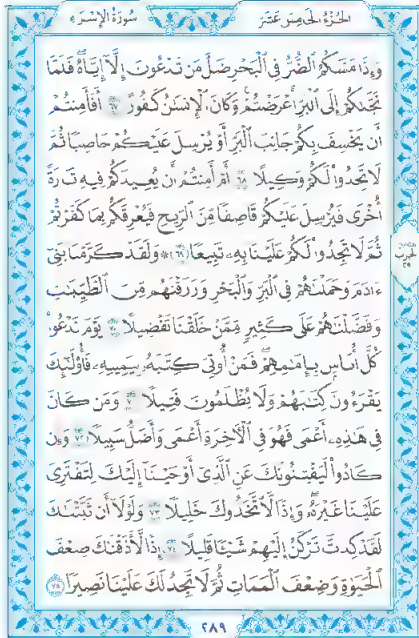 الجزء الخامس عشر
سورة الإسراء
وَإِذَا مَسَّكُمُ ٱلضُّرُّ فِى ٱلۡبَحۡرِ ضَلَّ مَن تَدۡعُونَ إِلَّآ إِيَّاهُۖ فَلَمَّا
نَجَّىٰكُمۡ إِلَى ٱلۡبَرِّ أَعۡرَضۡتُمۡۚ وَكَانَ ٱلۡإِنسَٰنُ كَفُورًا ٦٧ أَفَأَمِنتُمۡ
أَن يَخۡسِفَ بِكُمۡ جَانِبَ ٱلۡبَرِّ أَوۡ يُرۡسِلَ عَلَيۡكُمۡ حَاصِبًا ثُمَّ
لَا تَجِدُواْ لَكُمۡ وَكِيلًا ٦٨ أَمۡ أَمِنتُمۡ أَن يُعِيدَكُمۡ فِيهِ تَارَةً
أُخۡرَىٰ فَيُرۡسِلَ عَلَيۡكُمۡ قَاصِفًا مِّنَ ٱلرِّيحِ فَيُغۡرِقَكُم بِمَا كَفَرۡتُمۡ
ثُمَّ لَا تَجِدُواْ لَكُمۡ عَلَيۡنَا بِهِۦ تَبِيعًا ٦٩ ۞ وَلَقَدۡ كَرَّمۡنَا بَنِىٓ
ءَادَمَ وَحَمَلۡنَٰهُمۡ فِى ٱلۡبَرِّ وَٱلۡبَحۡرِ وَرَزَقۡنَٰهُم مِّنَ ٱلطَّيِّبَٰتِ
وَفَضَّلۡنَٰهُمۡ عَلَىٰ كَثِيرٍ مِّمَّنۡ خَلَقۡنَا تَفۡضِيلًا ٧٠ يَوۡمَ نَدۡعُواْ
كُلَّ أُنَاسٍۭ بِإِمَٰمِهِمۡۖ فَمَنۡ أُوتِىَ كِتَٰبَهُۥ بِيَمِينِهِۦ فَأُوْلَٰٓئِكَ
يَقۡرَءُونَ كِتَٰبَهُمۡ وَلَا يُظۡلَمُونَ فَتِيلًا ٧١ وَمَن كَانَ
فِى هَٰذِهِۦٓ أَعۡمَىٰ فَهُوَ فِى ٱلۡأٓخِرَةِ أَعۡمَىٰ وَأَضَلُّ سَبِيلًا ٧٢ وَإِن
كَادُواْ لَيَفۡتِنُونَكَ عَنِ ٱلَّذِىٓ أَوۡحَيۡنَآ إِلَيۡكَ لِتَفۡتَرِىَ
عَلَيۡنَا غَيۡرَهُۥۖ وَإِذًا لَّٱتَّخَذُوكَ خَلِيلًا ٧٣ وَلَوۡلَآ أَن ثَبَّتۡنَٰكَ
لَقَدۡ كِدتَّ تَرۡكَنُ إِلَيۡهِمۡ شَيۡـًٔا قَلِيلًا ٧٤ إِذًا لَّأَذَقۡنَٰكَ ضِعۡفَ
ٱلۡحَيَوٰةِ وَضِعۡفَ ٱلۡمَمَاتِ ثُمَّ لَا تَجِدُ لَكَ عَلَيۡنَا نَصِيرًا ٧٥
٢٨٩